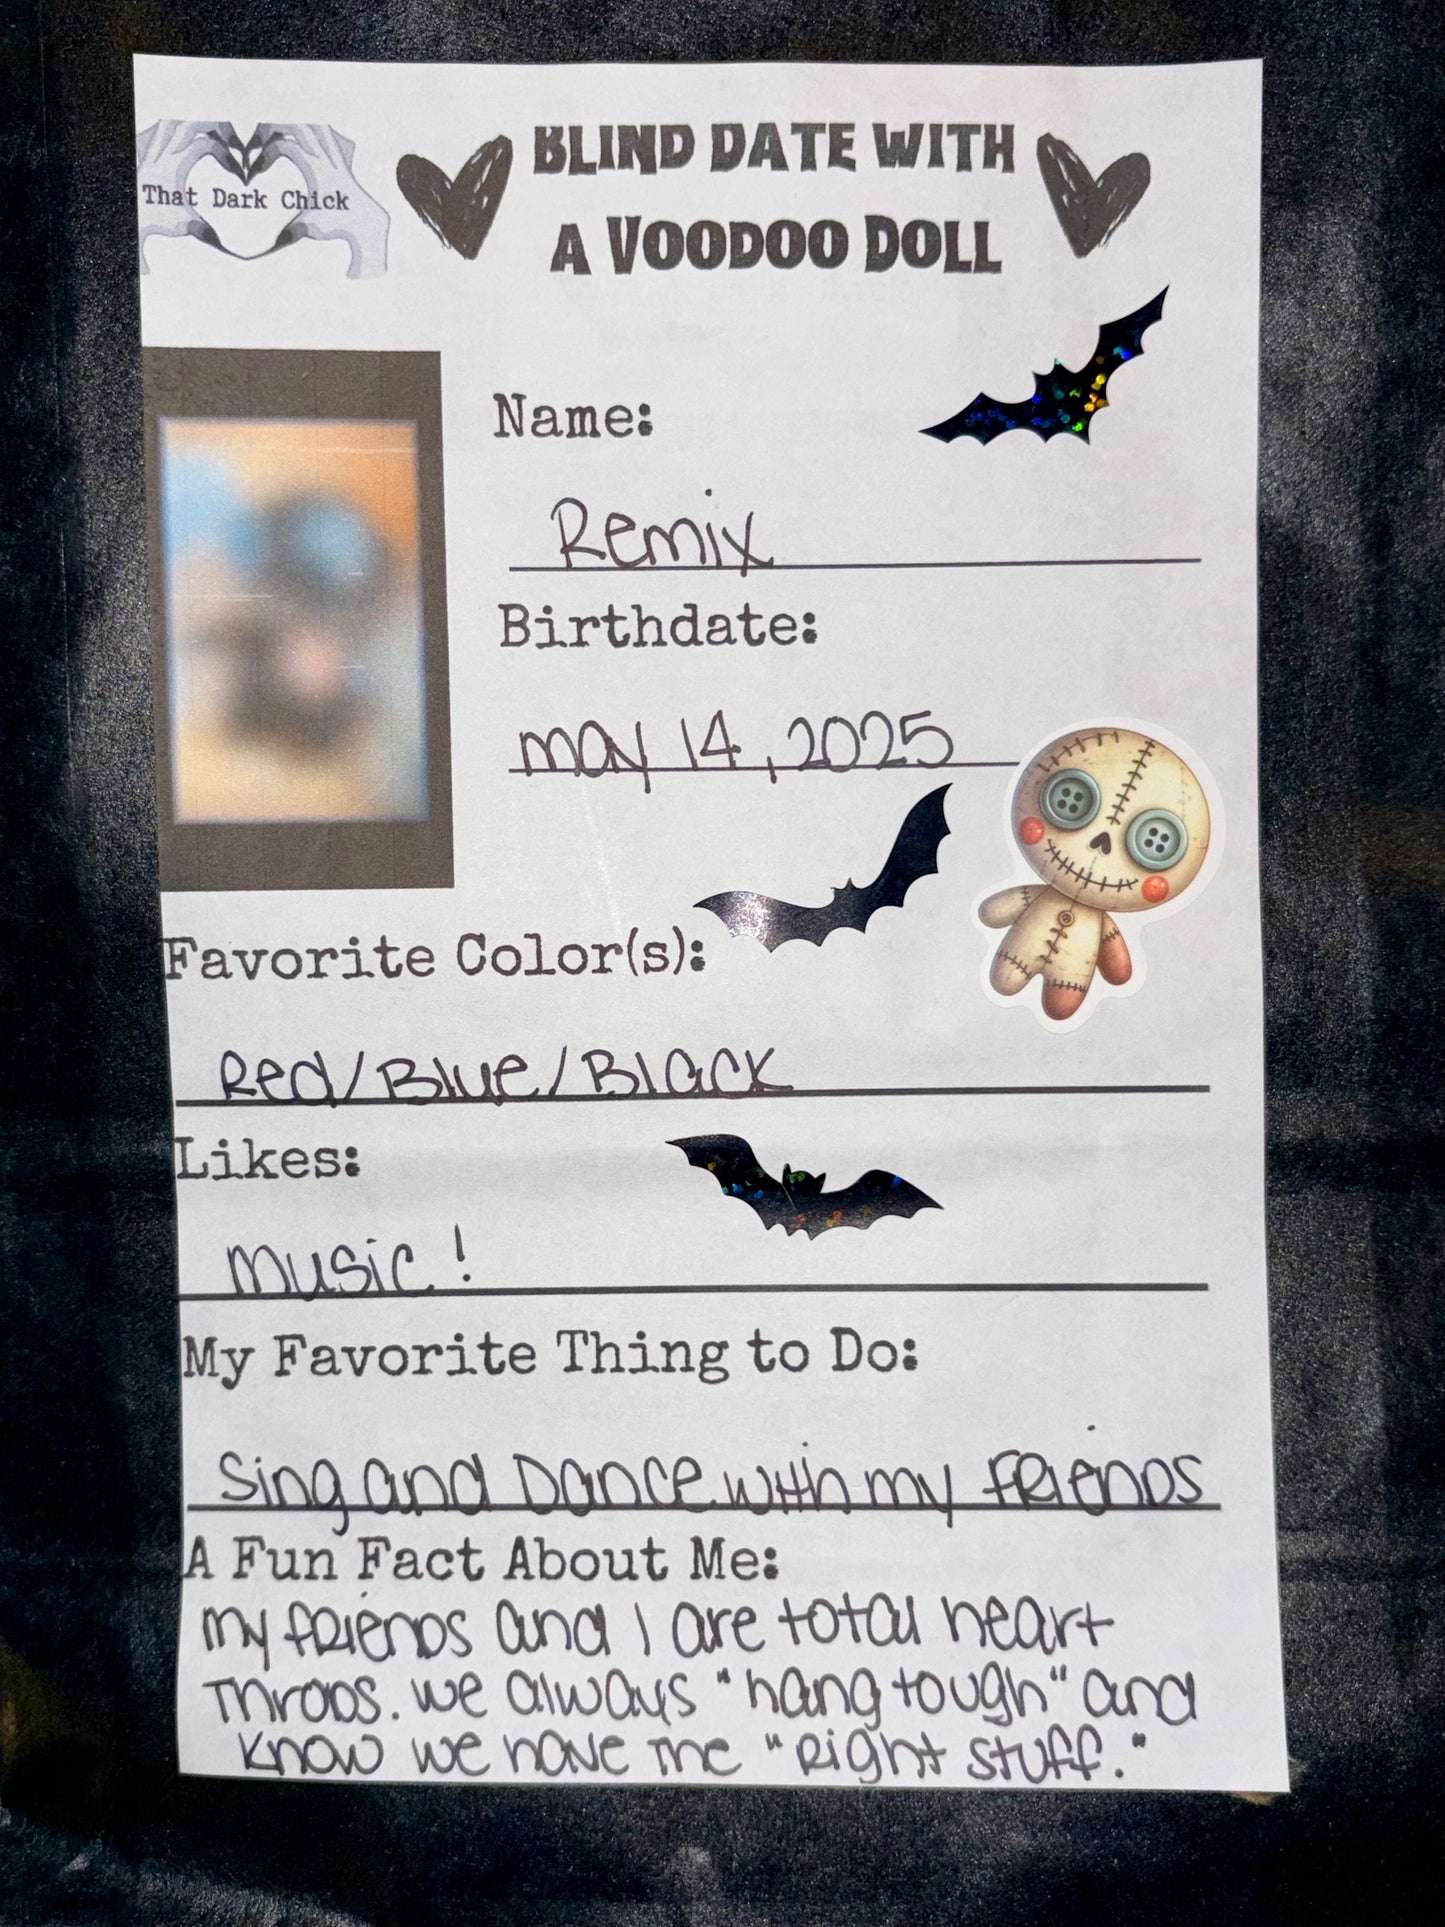 That Dark Chick
BLIND DATE WITH
A VOODOO DOLL
Name:
Remix
Birthdate:
may 14, 2025
Favorite Color(s):
Red/Blue/Black
Likes:
music!
My Favorite Thing to Do:
Sing and Dance with my friends
A Fun Fact About Me:
my friends and I are total heart
Throbs. we always "hang tough" and
know we have the "Right stuff."